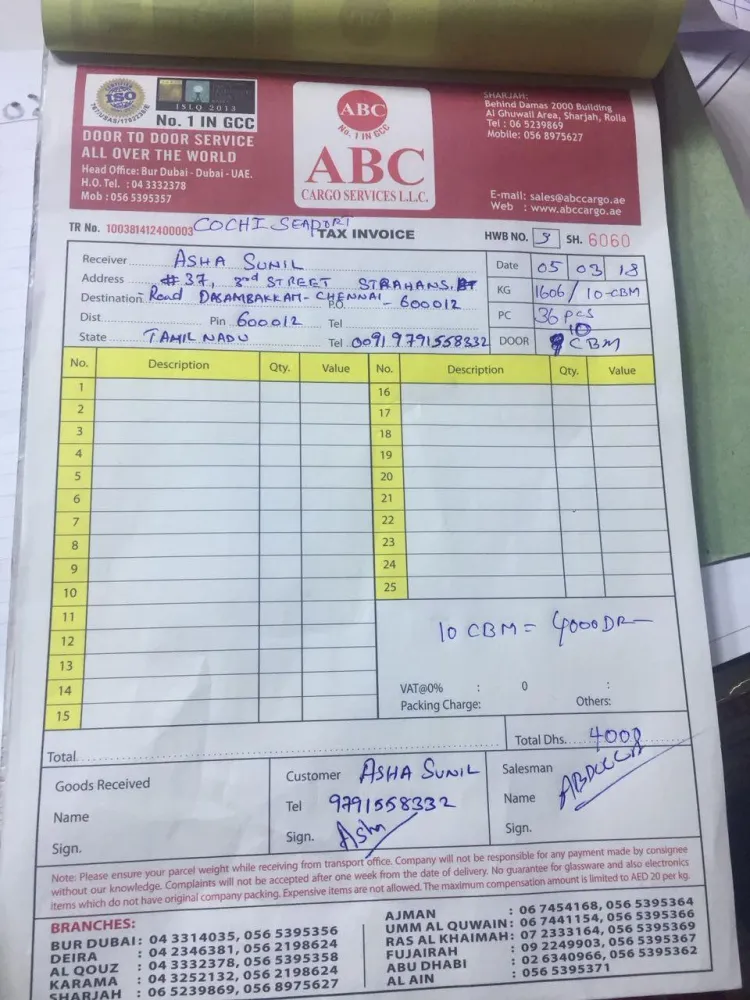 ISO
ISLQ 2013
No. 1 IN GCC
DOOR TO DOOR SERVICE
ALL OVER THE WORLD
Head Office: Bur Dubai - Dubai - UAE.
H.O. Tel. : 04 3332378
Mob : 056 5395357
ABC
No. 1 IN GCC
ABC
CARGO SERVICES L.L.C.
SHARJAH:
Behind Damas 2000 Building
Al Ghuwair Area, Sharjah, Rolla
Tel : 06 5239869
Mobile: 056 8975627
E-mail: sales@abccargo.ae
Web : www.abccargo.ae
TR No. 100381412400003 COCHI SEAPORT
TAX INVOICE
HWB NO. 9 SH. 6060
Receiver ASHA SUNIL
Address #37, 3rd STREET STRAHANS,
Destination Road DASAMBAKKAM- CHENNAI P.O. - 600012
Dist. Pin 600012 Tel
State TAMIL NADU Tel 0091 9791558332
Date 05 03 18
KG 1606/10-CBM
PC 36 pcs
DOOR 10 CBM
No. Description Qty. Value No. Description Qty. Value
1 16
2 17
3 18
4 19
5 20
6 21
7 22
8 23
9 24
10 25
11
12
13
14
15
10 CBM = 4000DR
VAT@0% : 0 :
Packing Charge: Others:
Total
Total Dhs. 4000
Goods Received
Name
Sign.
Customer ASHA SUNIL
Tel 9791558332
Sign. Asha
Salesman
Name
Sign.
Note: Please ensure your parcel weight while receiving from transport office. Company will not be responsible for any payment made by consignee
without our knowledge. Complaints will not be accepted after one week from the date of delivery. No guarantee for glassware and also electronics
items which do not have original company packing. Expensive items are not allowed. The maximum compensation amount is limited to AED 20 per kg.
BRANCHES:
BUR DUBAI: 04 3314035, 056 5395356
DEIRA : 04 2346381, 056 2198624
AL QOUZ : 04 3332378, 056 5395358
KARAMA : 04 3252132, 056 2198624
SHARJAH : 06 5239869, 056 8975627
AJMAN : 06 7454168, 056 5395364
UMM AL QUWAIN: 06 7441154, 056 5395366
RAS AL KHAIMAH: 07 2333164, 056 5395369
FUJAIRAH : 09 2249903, 056 5395367
ABU DHABI : 02 6340966, 056 5395362
AL AIN : 056 5395371